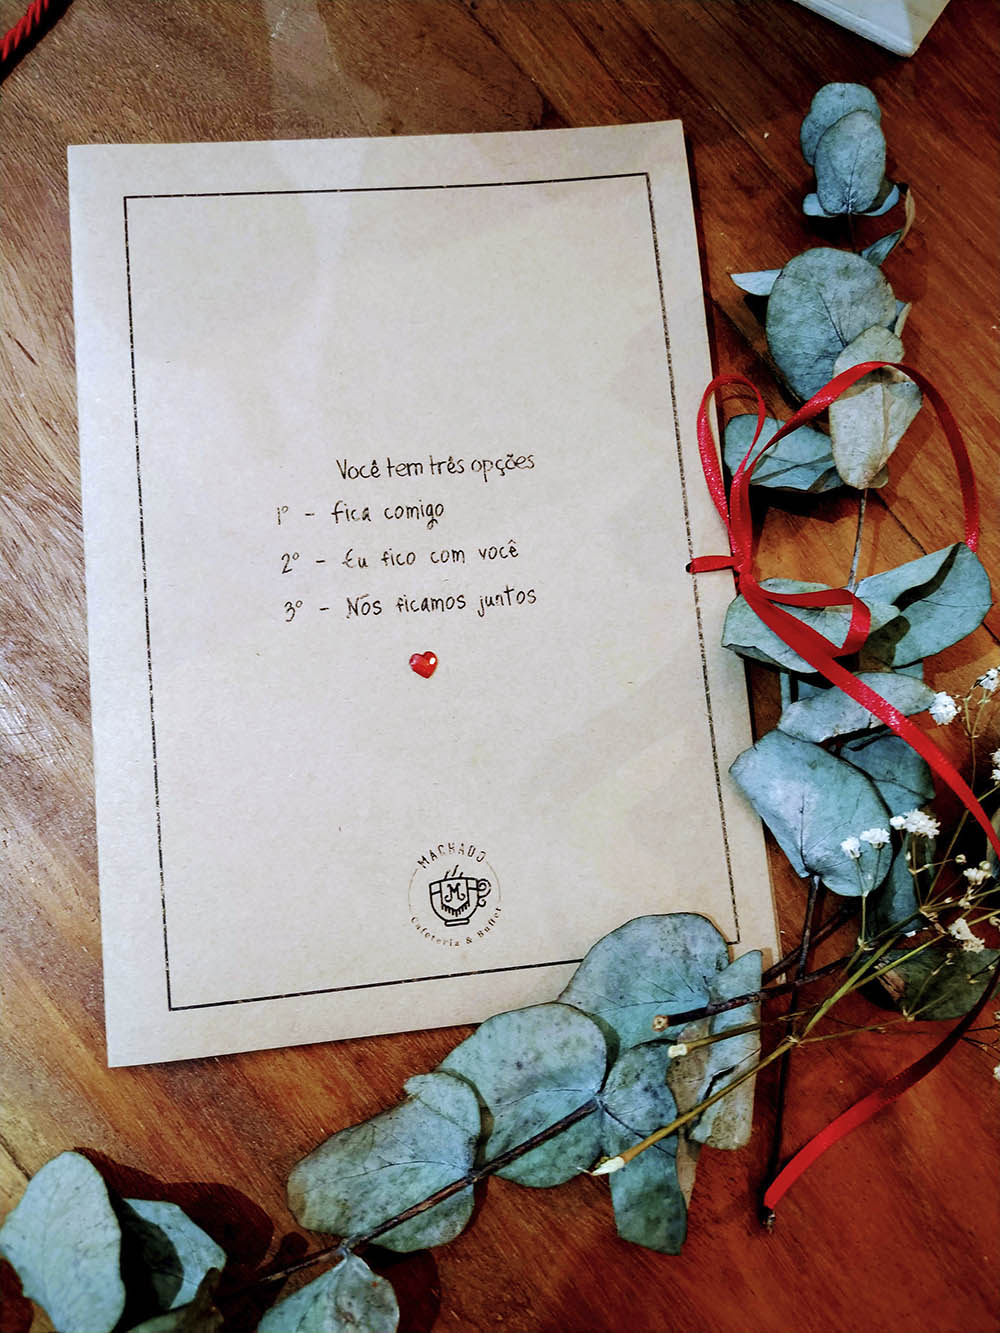 Você tem três opções
1º - fica comigo
2º - Eu fico com você
3º - Nós ficamos juntos
MACHADO
M
Cafeteria & Buffet